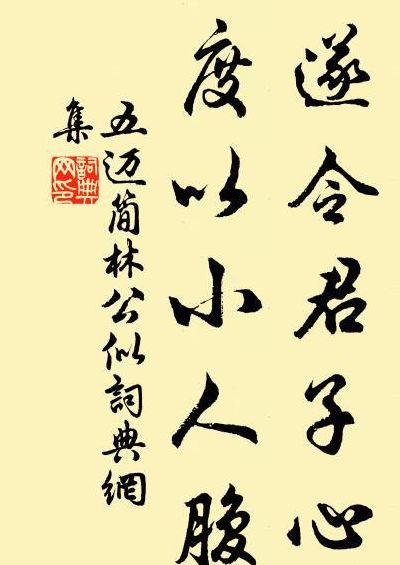 遂令君子心
度以小人腹
五迈简林公似詞典網
集
詞典
网印